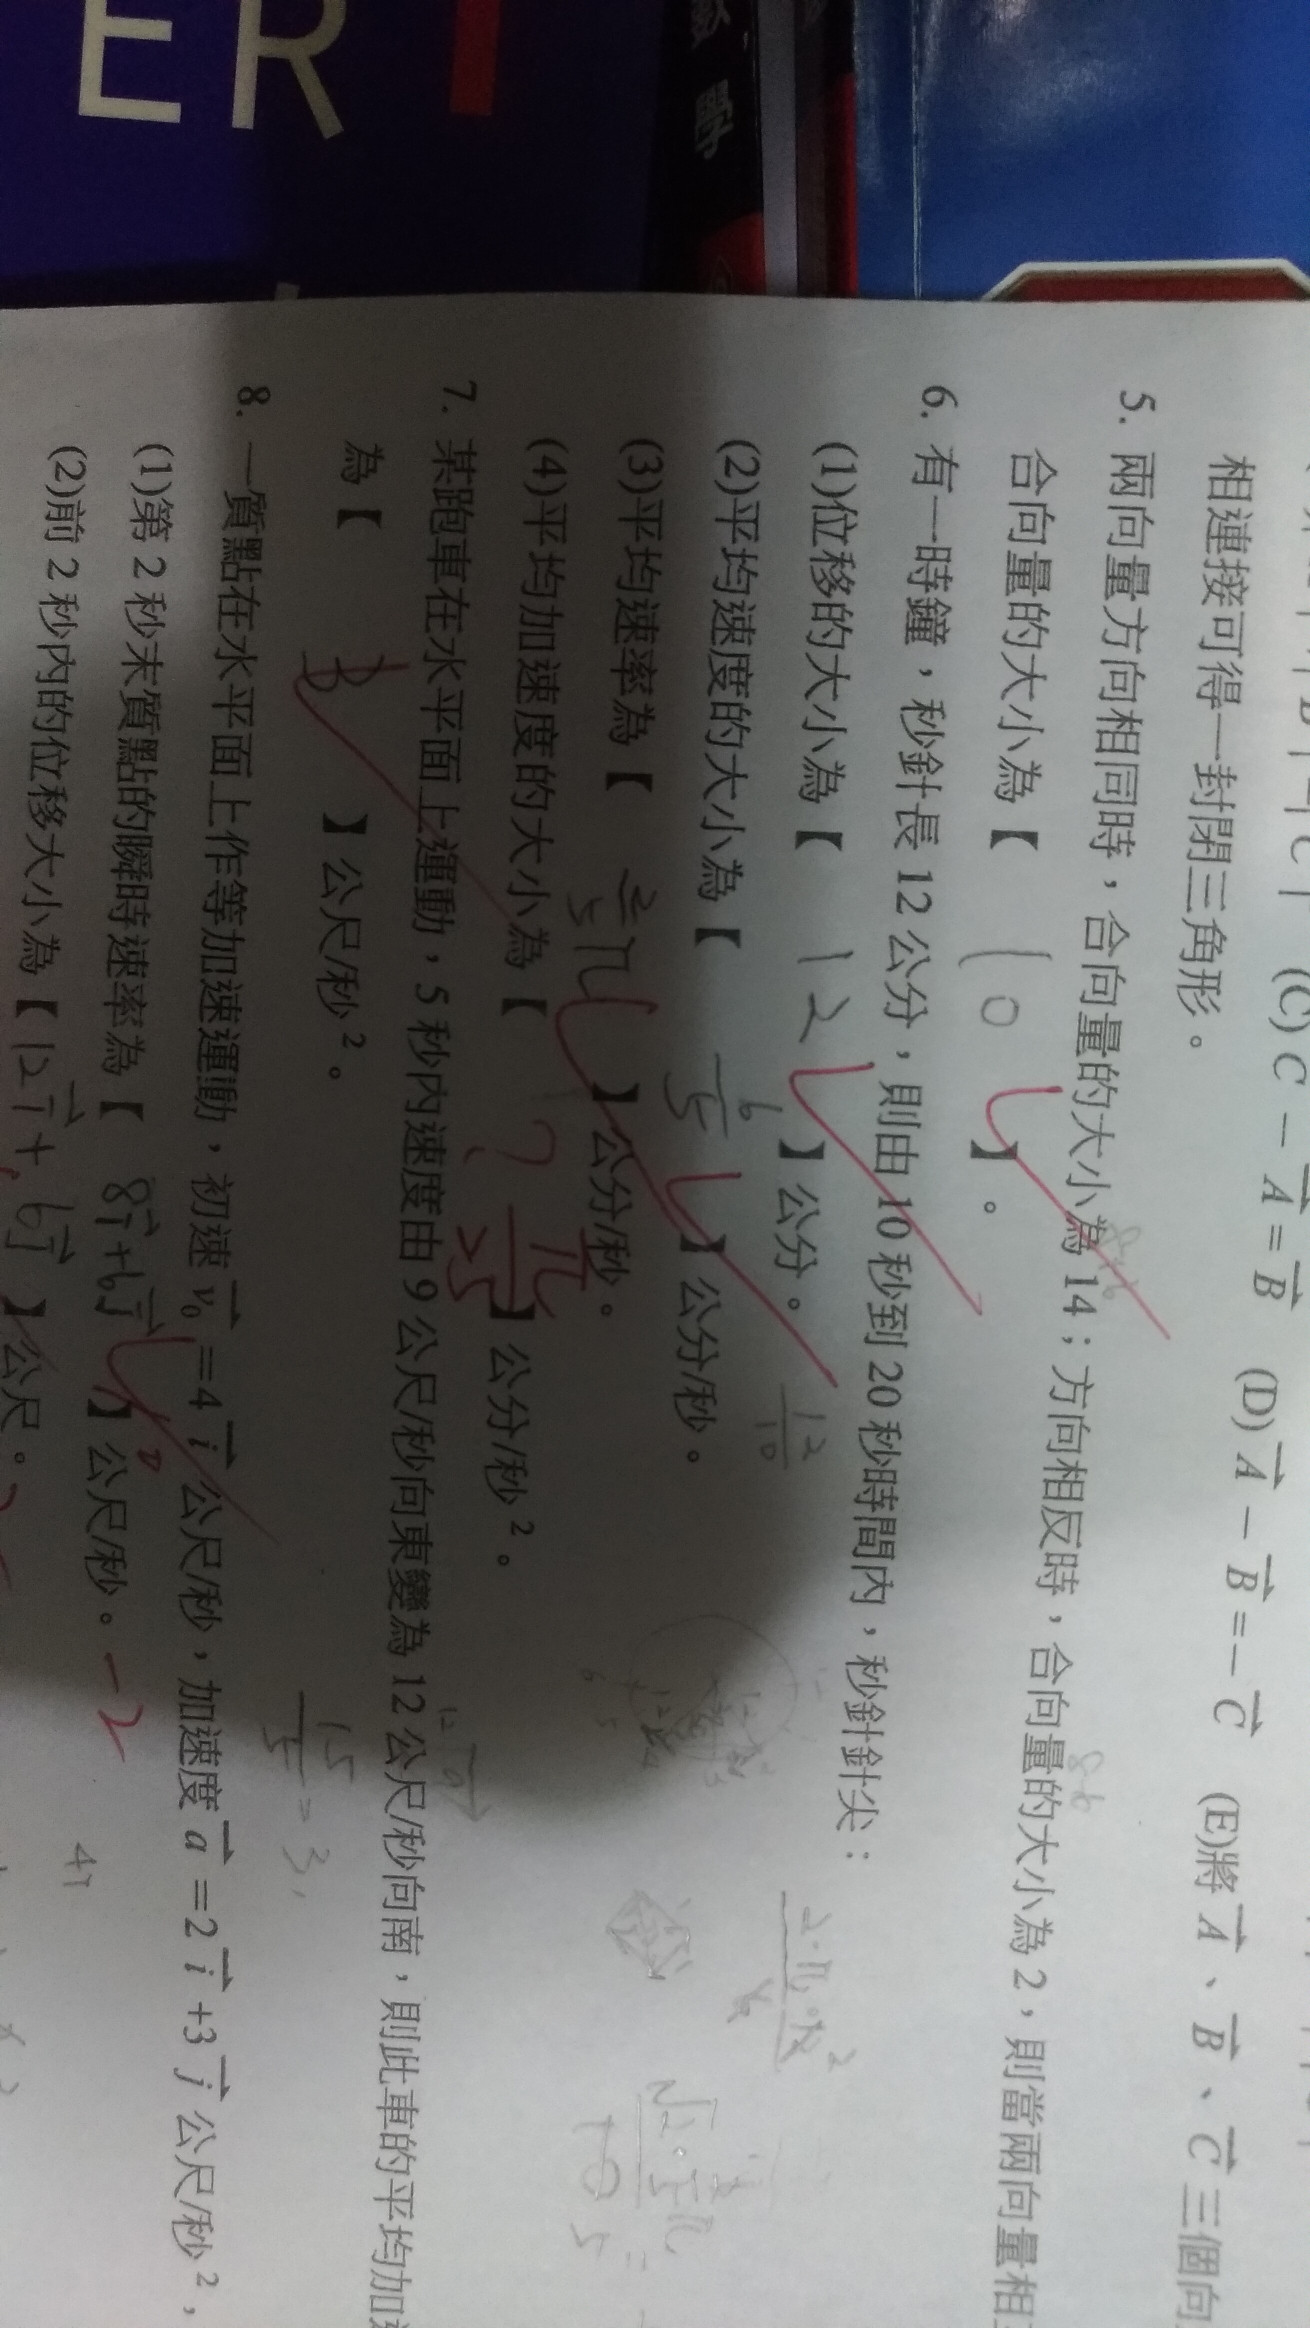 ER
相連接可得一封閉三角形。
(C) C − A = B (D) A − B = − C (E)將 A、B、C 三個向
5. 兩向量方向相同時，合向量的大小為 14；方向相反時，合向量的大小為 2，則當兩向量相
合向量的大小為【 10 】。
8+6
8-6
6. 有一時鐘，秒針長 12 公分，則由 10 秒到 20 秒時間內，秒針針尖：
(1)位移的大小為【 12 】公分。
(2)平均速度的大小為【 6/5 】公分/秒。
12/10
(3)平均速率為【 2/5 π 】公分/秒。
(4)平均加速度的大小為【 ? π²/25 】公分/秒²。
7. 某跑車在水平面上運動，5 秒內速度由 9 公尺/秒向東變為 12 公尺/秒向南，則此車的平均加速
為【 3 】公尺/秒²。
15/5 = 3
8. 一質點在水平面上作等加速運動，初速 v₀ = 4 i 公尺/秒，加速度 a = 2 i + 3 j 公尺/秒²，
(1)第 2 秒末質點的瞬時速率為【 8i + 6j 】公尺/秒。 −2
(2)前 2 秒內的位移大小為【 12i + 6j 】公尺。